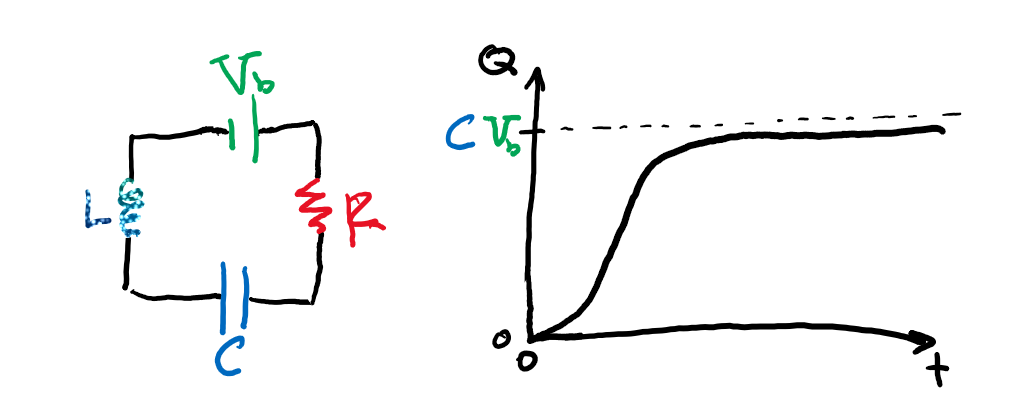 V_b
L
R
C
Q
C V_b
0
0
t